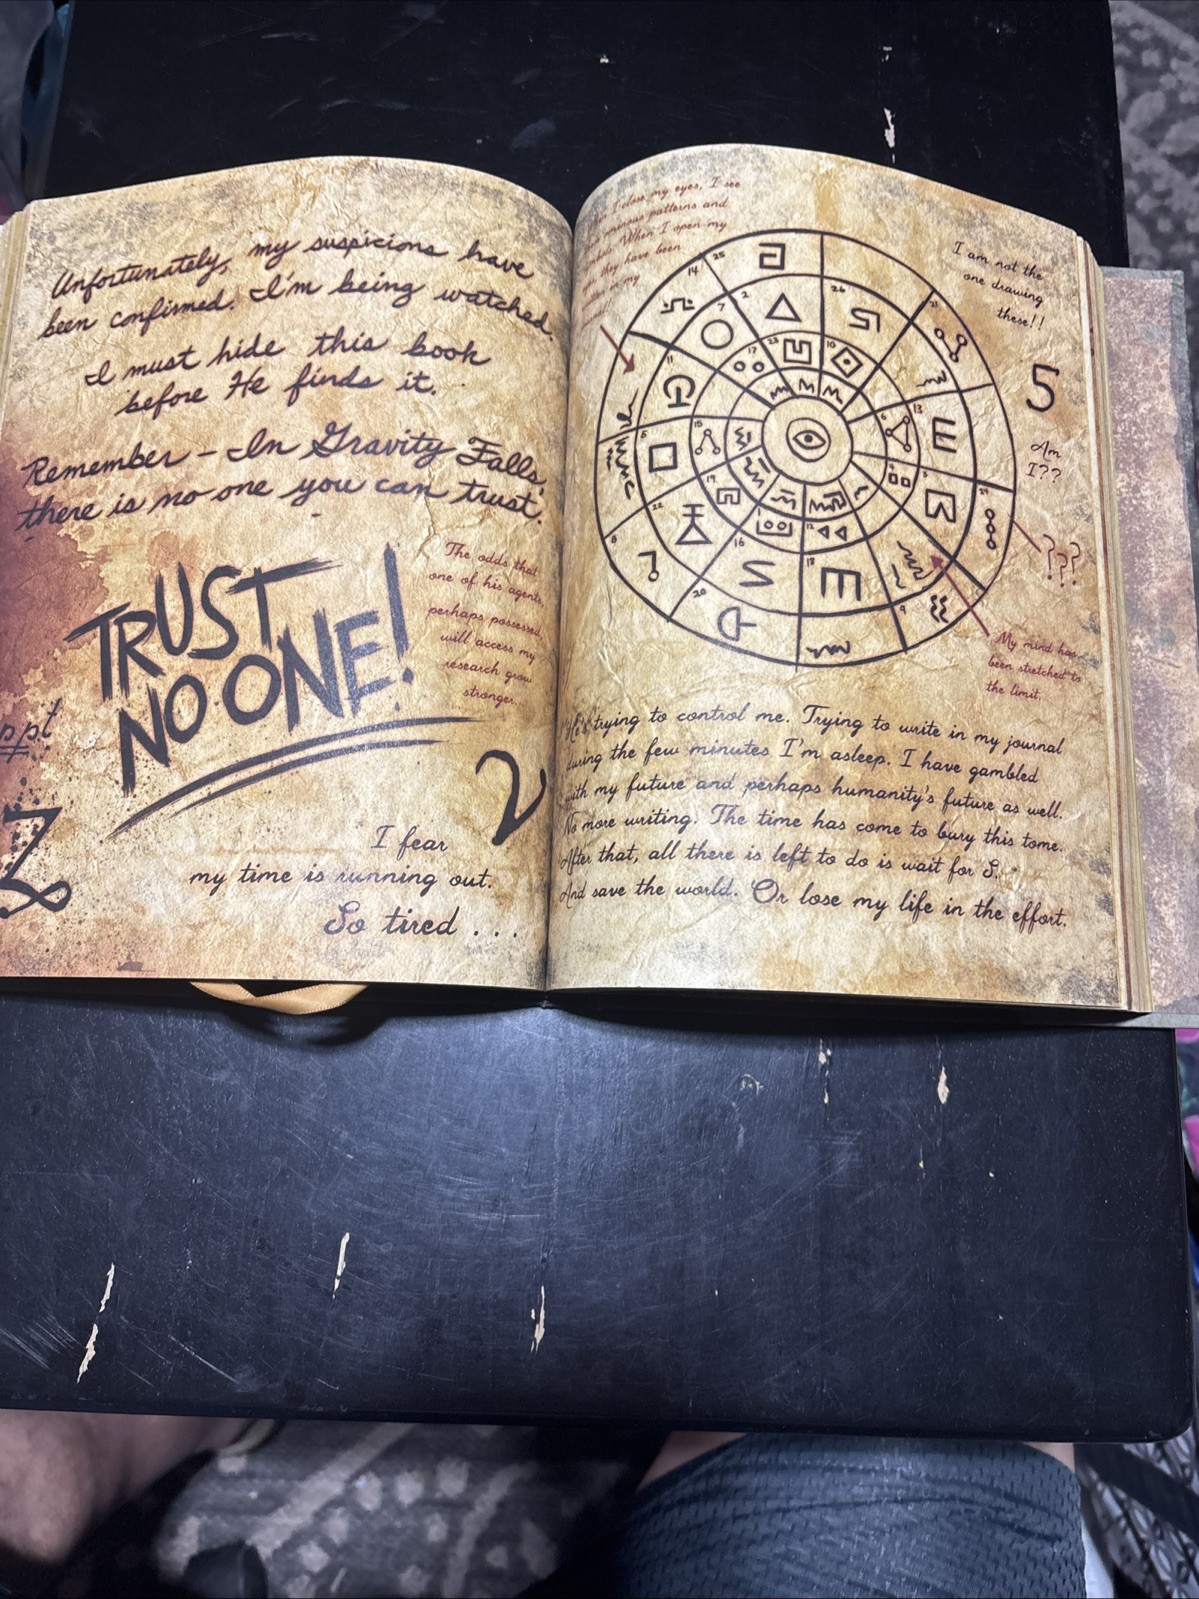 Unfortunately, my suspicions have
been confirmed. I'm being watched.
I must hide this book
before He finds it.
Remember - In Gravity Falls,
there is no one you can trust.
TRUST
NO ONE!
The odds that
one of his agents,
perhaps possessed,
will access my
research grow
stronger.
ppt
Z
2
I fear
my time is running out.
So tired . . .
I close my eyes, I see
patterns and
When I open my
they have been
in my
I am not the
one drawing
these!!
5
Am
I??
???
14
25
2
26
7
17
23
10
11
13
6
5
19
22
16
12
18
8
20
9
My mind has
been stretched to
the limit.
He's trying to control me. Trying to write in my journal
during the few minutes I'm asleep. I have gambled
with my future and perhaps humanity's future as well.
No more writing. The time has come to bury this tome.
After that, all there is left to do is wait for S.
And save the world. Or lose my life in the effort.